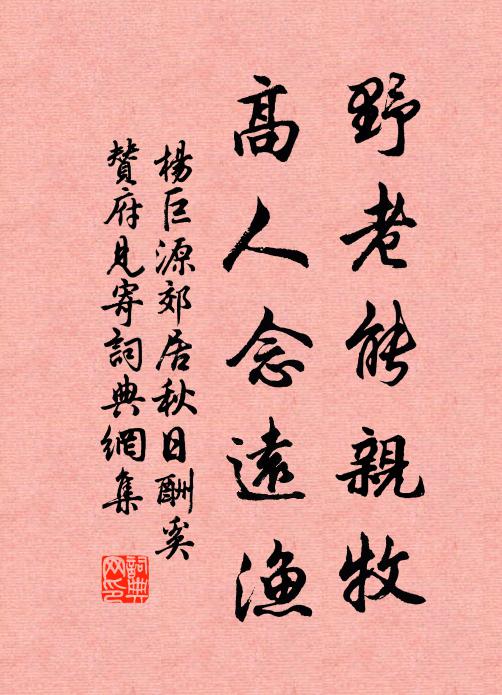 野老能親牧
高人念遠漁
楊巨源郊居秋日酬奚
贊府見寄詞典網集
詞典
网印